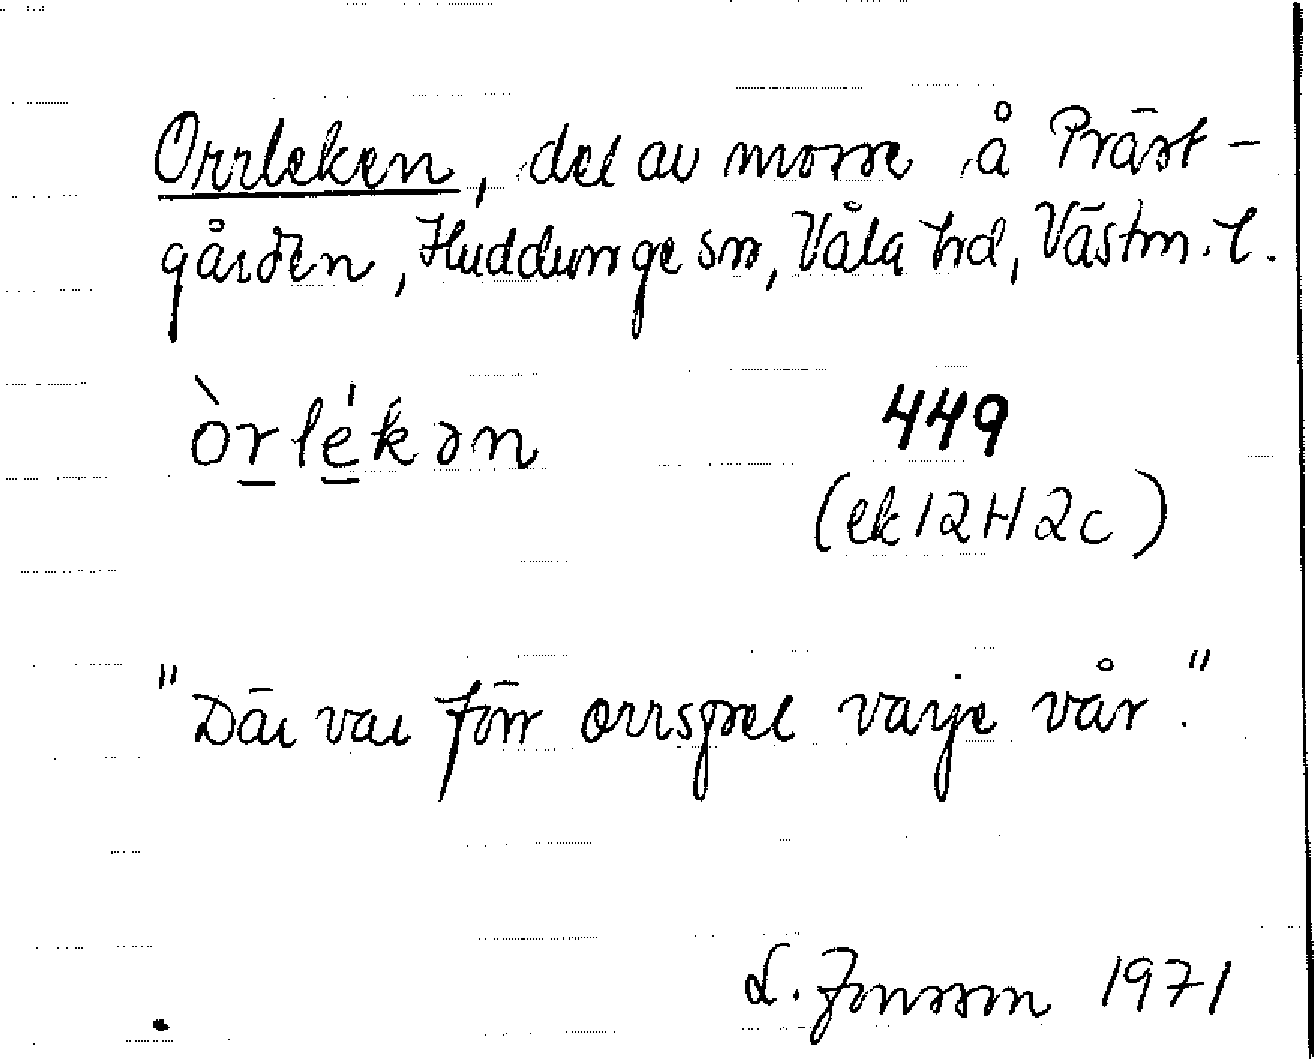 Orrleken, del av mosse å Präst-
gården, Huddunge sn, Våla hd, Västm. l.
òrlékən 449
(ek 12H2c)
"Där var förr orrspel varje vår."
L. Jonsson 1971